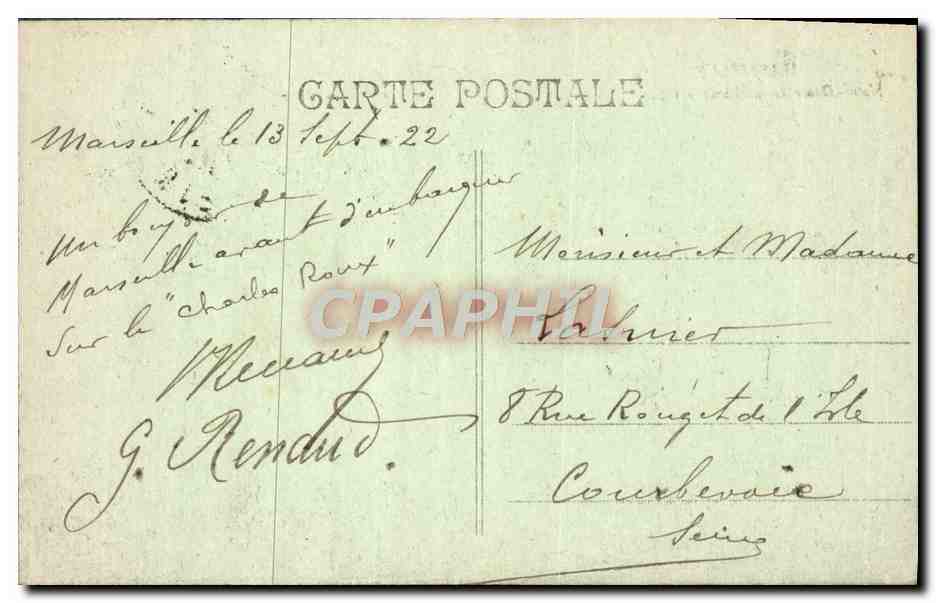 CARTE POSTALE
Marseille le 13 Sept. 22
Un bonjour de
Marseille avant d'embarquer
sur le "Charles Roux"
G. Renaud.
Monsieur et Madame
Lasnier
8 Rue Rouget de l'Isle
Courbevoie
Seine
CPAPHIL